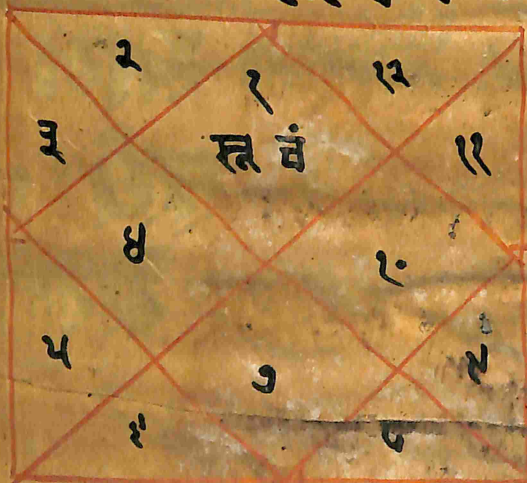 २ १ १२
३ स्न चं ११
४ १०
५ ७ ९
६ ८